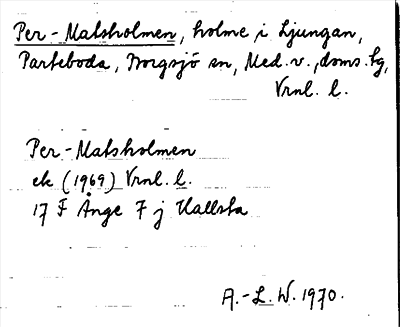 Per-Matsholmen, holme i Ljungan,
Parteboda, Borgsjö sn, Med. v., doms. hg,
Vrnl. l.
Per-Matsholmen
ek (1969) Vrnl. l.
17 F Ånge 7 j Hallsta
A.-L. W. 1970.